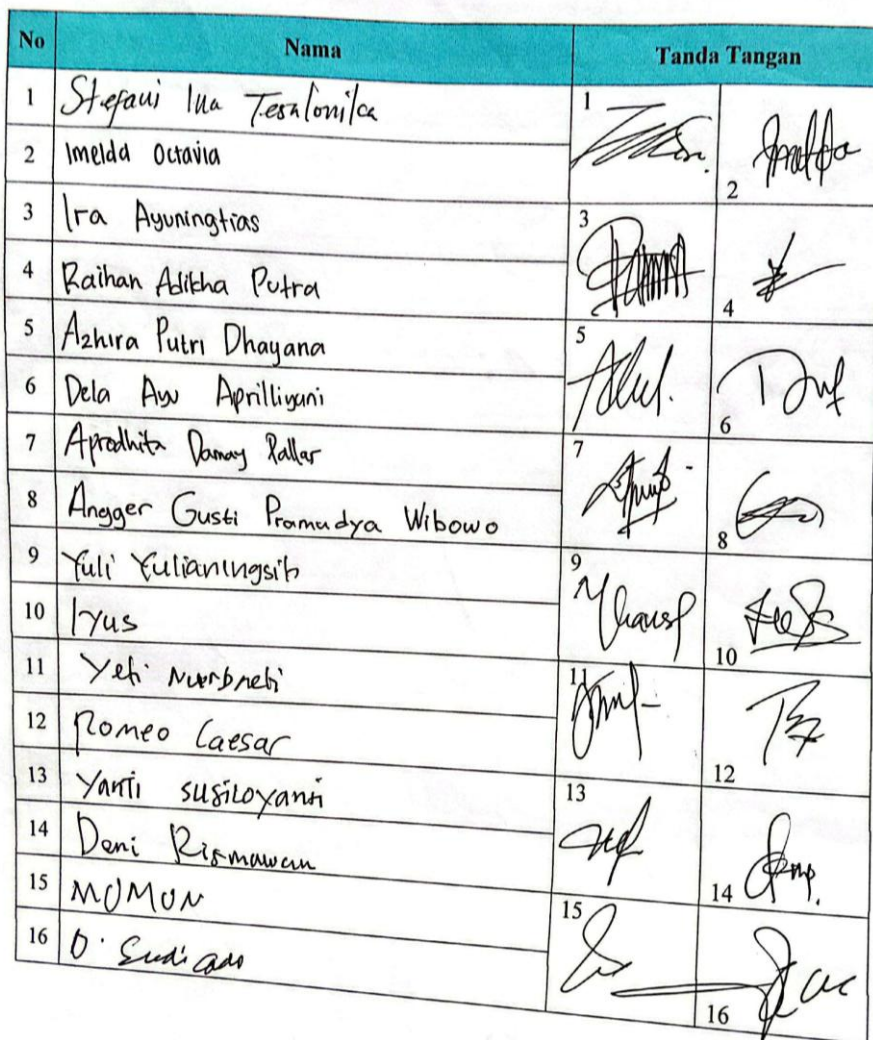 No Nama Tanda Tangan
1 Stefani Ina Tesalonika 1
2 Imelda Octavia 2
3 Ira Ayuningtias 3
4 Raihan Adikha Putra 4
5 Azhira Putri Dhayana 5
6 Dela Ayu Aprilliyani 6
7 Aprodhita Damay Pallar 7
8 Angger Gusti Pramudya Wibowo 8
9 Yuli Yulianingsih 9
10 Iyus 10
11 Yeti 11
12 Romeo Caesar 12
13 Yanti susiloyanti 13
14 Deni Rismawan 14
15 MUMUN 15
16 O. 16